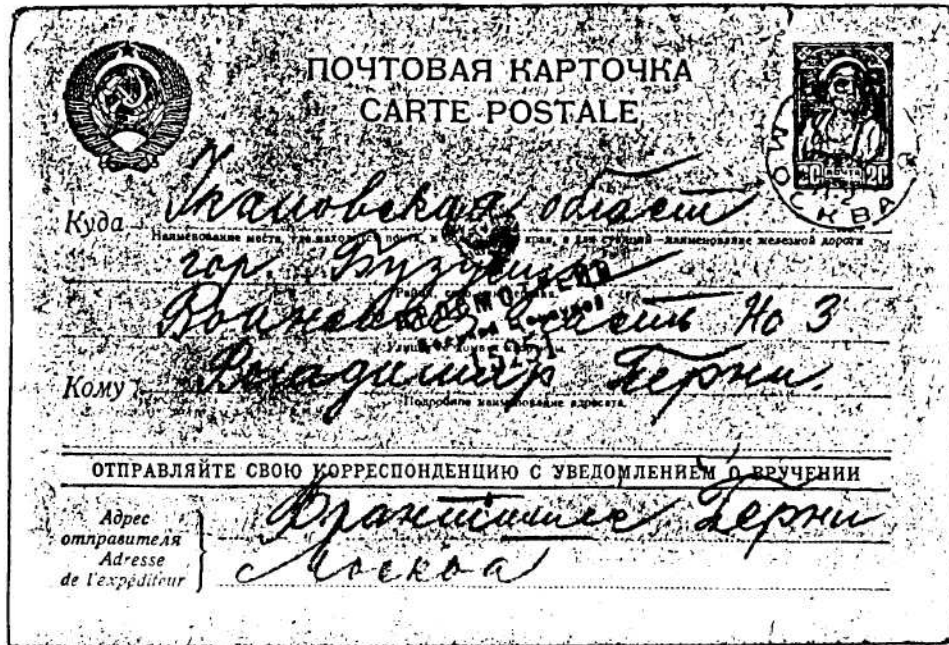 ПОЧТОВАЯ КАРТОЧКА
CARTE POSTALE
20 ПОЧТА 20
МОСКВА
Куда Чкаловская область
Наименование места, где находится почта, и края, а для станций — наименование железной дороги
гор. Бузулук
ПРОСМОТРЕНО
Военной Цензурой
Воинская часть No 3
Кому Владимир Берни.
Подробное наименование адресата.
ОТПРАВЛЯЙТЕ СВОЮ КОРРЕСПОНДЕНЦИЮ С УВЕДОМЛЕНИЕМ О ВРУЧЕНИИ
Адрес
отправителя
Adresse
de l'expéditeur
Франтишек Берни
Москва